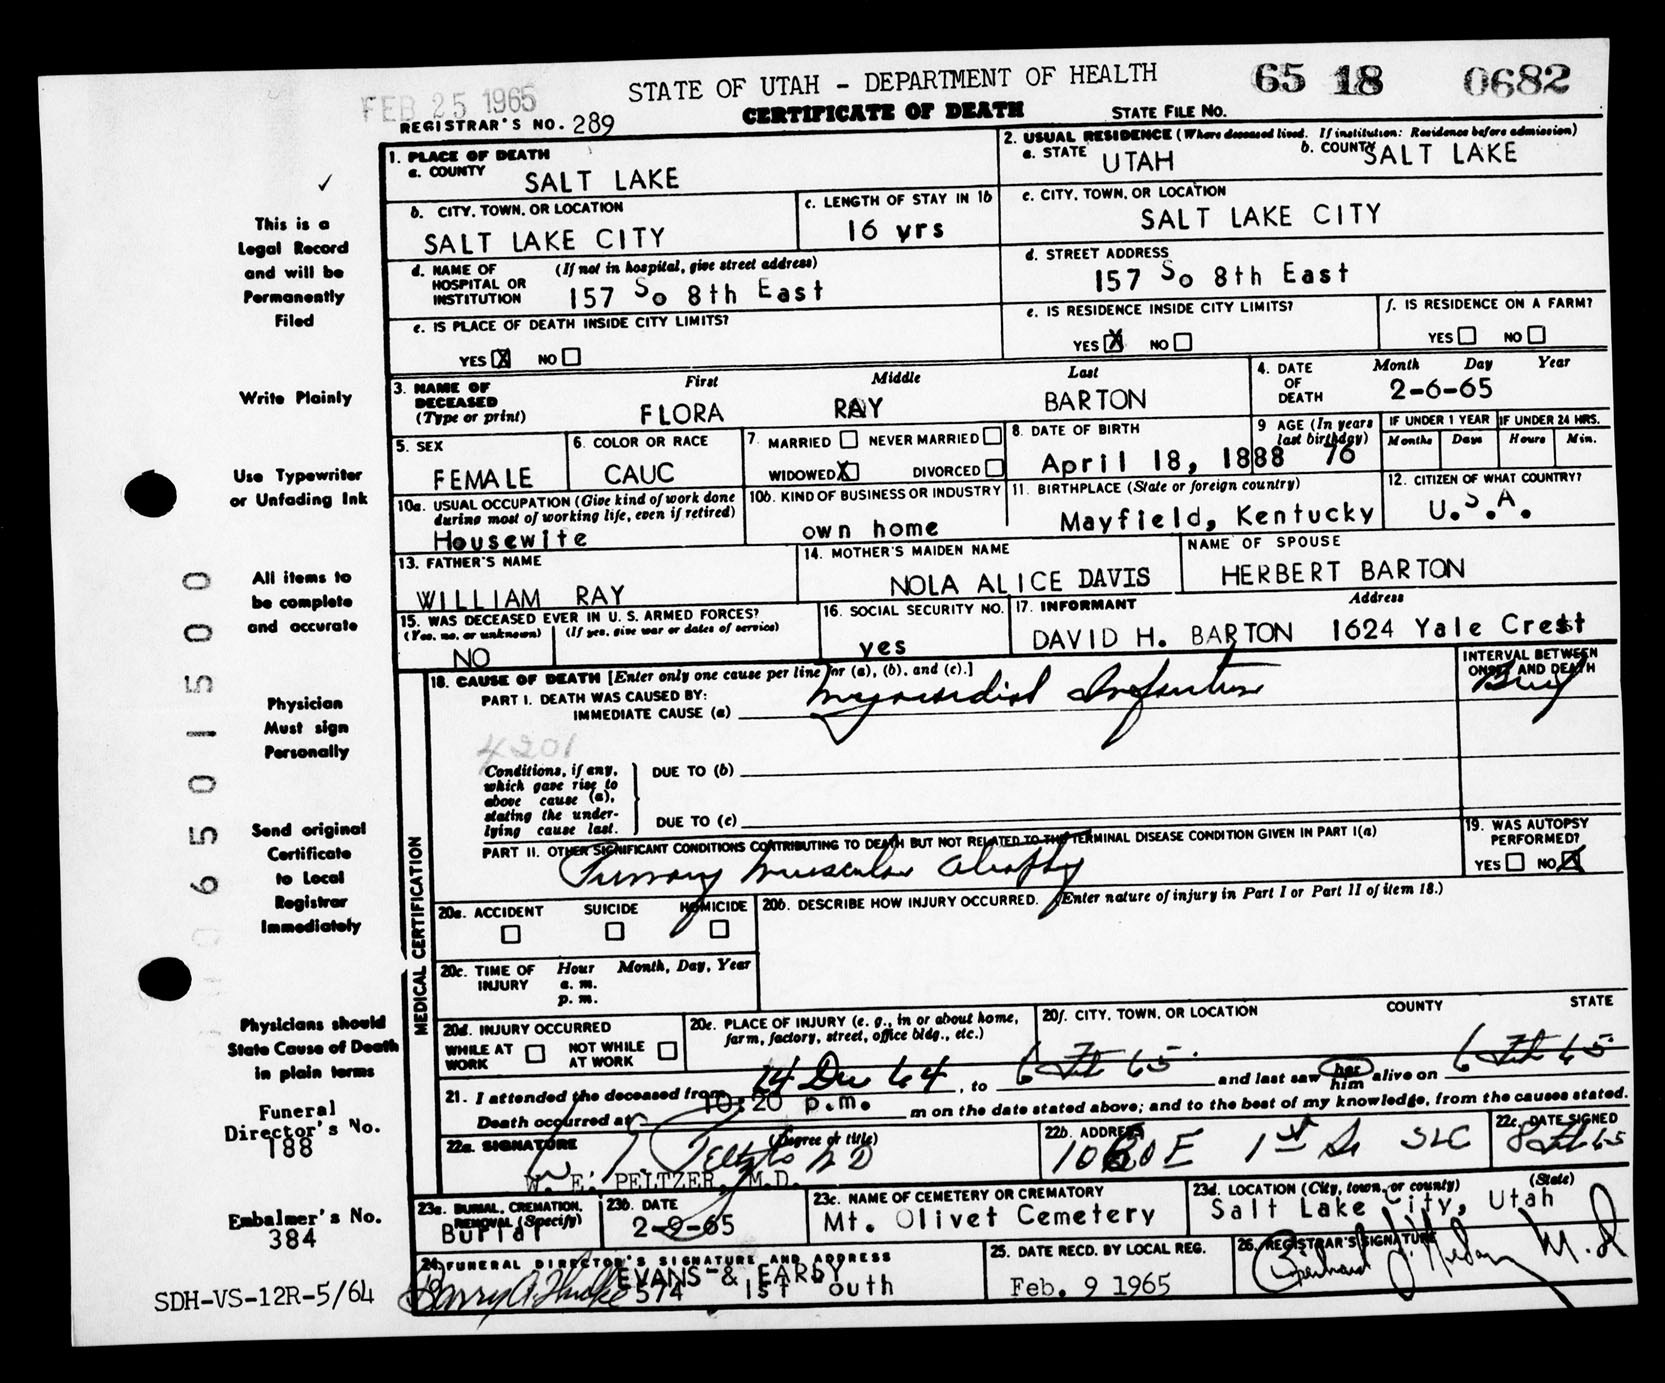 STATE OF UTAH - DEPARTMENT OF HEALTH
65 18 0682
FEB 25 1965
CERTIFICATE OF DEATH
STATE FILE NO.
REGISTRAR'S NO. 289
1. PLACE OF DEATH
a. COUNTY SALT LAKE
2. USUAL RESIDENCE (Where deceased lived. If institution: Residence before admission)
a. STATE UTAH b. COUNTY SALT LAKE
b. CITY, TOWN, OR LOCATION
SALT LAKE CITY
c. LENGTH OF STAY IN 1b
16 yrs
c. CITY, TOWN, OR LOCATION
SALT LAKE CITY
d. NAME OF HOSPITAL OR INSTITUTION (If not in hospital, give street address)
157 So 8th East
d. STREET ADDRESS
157 So 8th East
e. IS PLACE OF DEATH INSIDE CITY LIMITS?
YES X NO
e. IS RESIDENCE INSIDE CITY LIMITS?
YES X NO
f. IS RESIDENCE ON A FARM?
YES NO
3. NAME OF DECEASED (Type or print)
First Middle Last
FLORA RAY BARTON
4. DATE OF DEATH
Month Day Year
2-6-65
5. SEX
FEMALE
6. COLOR OR RACE
CAUC
7. MARRIED NEVER MARRIED
WIDOWED X DIVORCED
8. DATE OF BIRTH
April 18, 1888
9 AGE (In years last birthday)
76
IF UNDER 1 YEAR
Months Days
IF UNDER 24 HRS.
Hours Min.
10a. USUAL OCCUPATION (Give kind of work done during most of working life, even if retired)
Housewife
10b. KIND OF BUSINESS OR INDUSTRY
own home
11. BIRTHPLACE (State or foreign country)
Mayfield, Kentucky
12. CITIZEN OF WHAT COUNTRY?
U.S.A.
13. FATHER'S NAME
WILLIAM RAY
14. MOTHER'S MAIDEN NAME
NOLA ALICE DAVIS
NAME OF SPOUSE
HERBERT BARTON
15. WAS DECEASED EVER IN U.S. ARMED FORCES?
(Yes, no, or unknown) (If yes, give war or dates of service)
NO
16. SOCIAL SECURITY NO.
yes
17. INFORMANT Address
DAVID H. BARTON 1624 Yale Crest
18. CAUSE OF DEATH [Enter only one cause per line for (a), (b), and (c).]
PART I. DEATH WAS CAUSED BY:
IMMEDIATE CAUSE (a) Myocardial Infarction
INTERVAL BETWEEN ONSET AND DEATH
Brief
4201
Conditions, if any, which gave rise to above cause (a), stating the under-lying cause last.
DUE TO (b)
DUE TO (c)
PART II. OTHER SIGNIFICANT CONDITIONS CONTRIBUTING TO DEATH BUT NOT RELATED TO THE TERMINAL DISEASE CONDITION GIVEN IN PART I(a)
Primary muscular atrophy
19. WAS AUTOPSY PERFORMED?
YES NO X
MEDICAL CERTIFICATION
20a. ACCIDENT SUICIDE HOMICIDE
20b. DESCRIBE HOW INJURY OCCURRED. (Enter nature of injury in Part I or Part II of item 18.)
20c. TIME OF INJURY Hour Month, Day, Year
a. m.
p. m.
20d. INJURY OCCURRED
WHILE AT WORK NOT WHILE AT WORK
20e. PLACE OF INJURY (e. g., in or about home, farm, factory, street, office bldg., etc.)
20f. CITY, TOWN, OR LOCATION COUNTY STATE
21. I attended the deceased from 14 Dec 64, to 6 Feb 65. and last saw her him alive on 6 Feb 65
Death occurred at 10:20 p.m. m on the date stated above; and to the best of my knowledge, from the causes stated.
22a. SIGNATURE (Degree or title)
W. E. PELTZER, M.D.
22b. ADDRESS
1060 E 1st So SLC
22c. DATE SIGNED
8 Feb 65
23a. BURIAL, CREMATION, REMOVAL (Specify)
Burial
23b. DATE
2-9-65
23c. NAME OF CEMETERY OR CREMATORY
Mt. Olivet Cemetery
23d. LOCATION (City, town, or county) (State)
Salt Lake City, Utah
24. FUNERAL DIRECTOR'S SIGNATURE AND ADDRESS
EVANS & EARLY
574 1st South
25. DATE RECD. BY LOCAL REG.
Feb. 9 1965
26. REGISTRAR'S SIGNATURE
M.D.
This is a
Legal Record
and will be
Permanently
Filed
Write Plainly
Use Typewriter
or Unfading Ink
All items to
be complete
and accurate
Physician
Must sign
Personally
Send original
Certificate
to Local
Registrar
Immediately
Physicians should
State Cause of Death
in plain terms
Funeral
Director's No.
188
Embalmer's No.
384
SDH-VS-12R-5/64
6501500